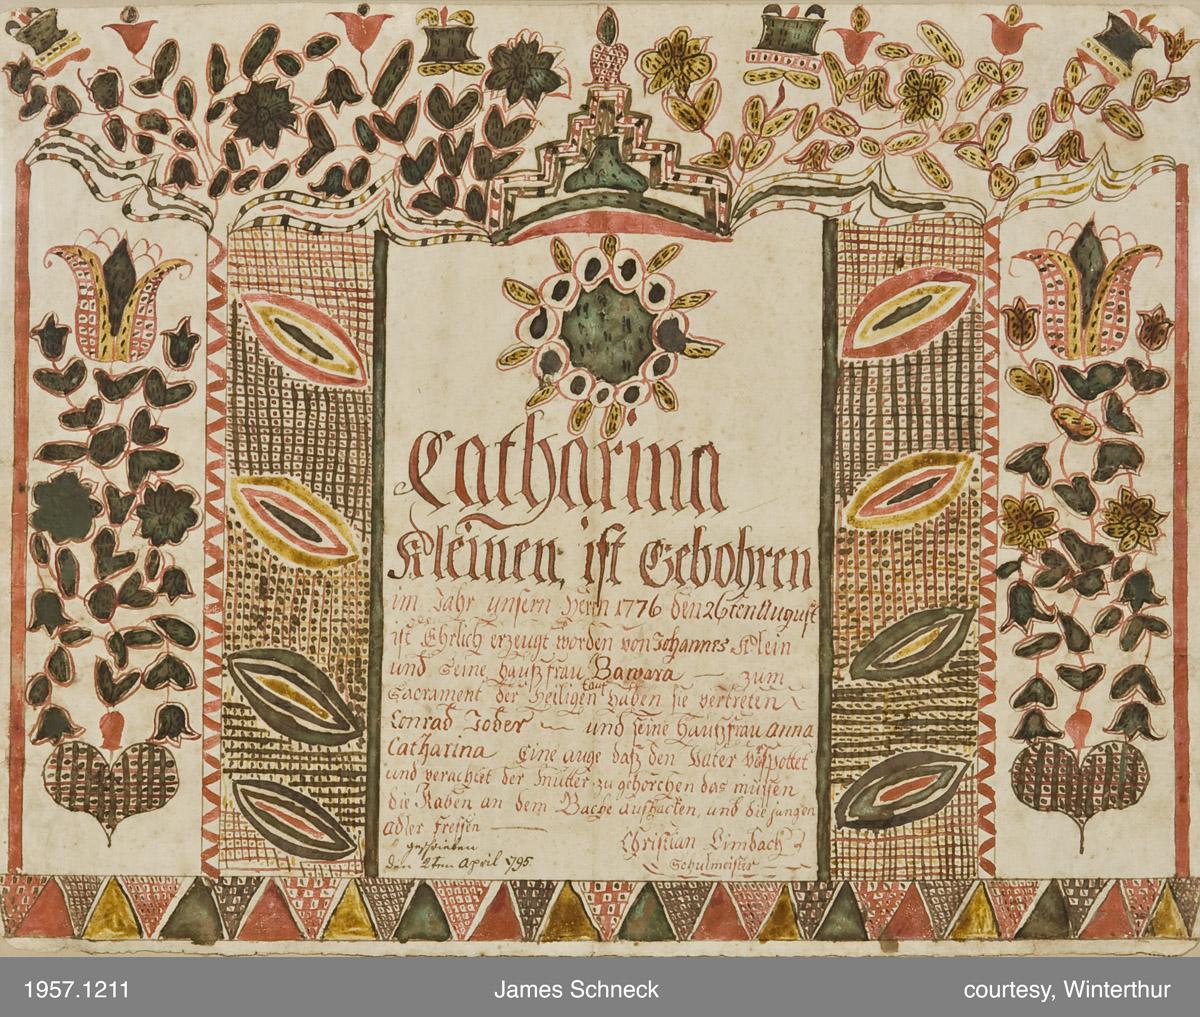 Catharina
Kleinen, ist Gebohren
im Jahr unsern Herrn 1776 den 26ten August
ist Ehrlich erzeugt worden von Johannes Klein
und seine haußfrau Barwara — zum
Sacrament der Heiligen tauf haben sie vertreten
Conrad Tober — und seine Haußfrau anna
Catharina Eine auge daß den Vater verspottet
und verachtet der mutter zu gehorchen das müssen
die Raben an dem Bache aushacken, und die jungen
adler fressen —
geschrieben
den 2ten april 1795
Christian Limbach
Schulmeister
1957.1211
James Schneck
courtesy, Winterthur